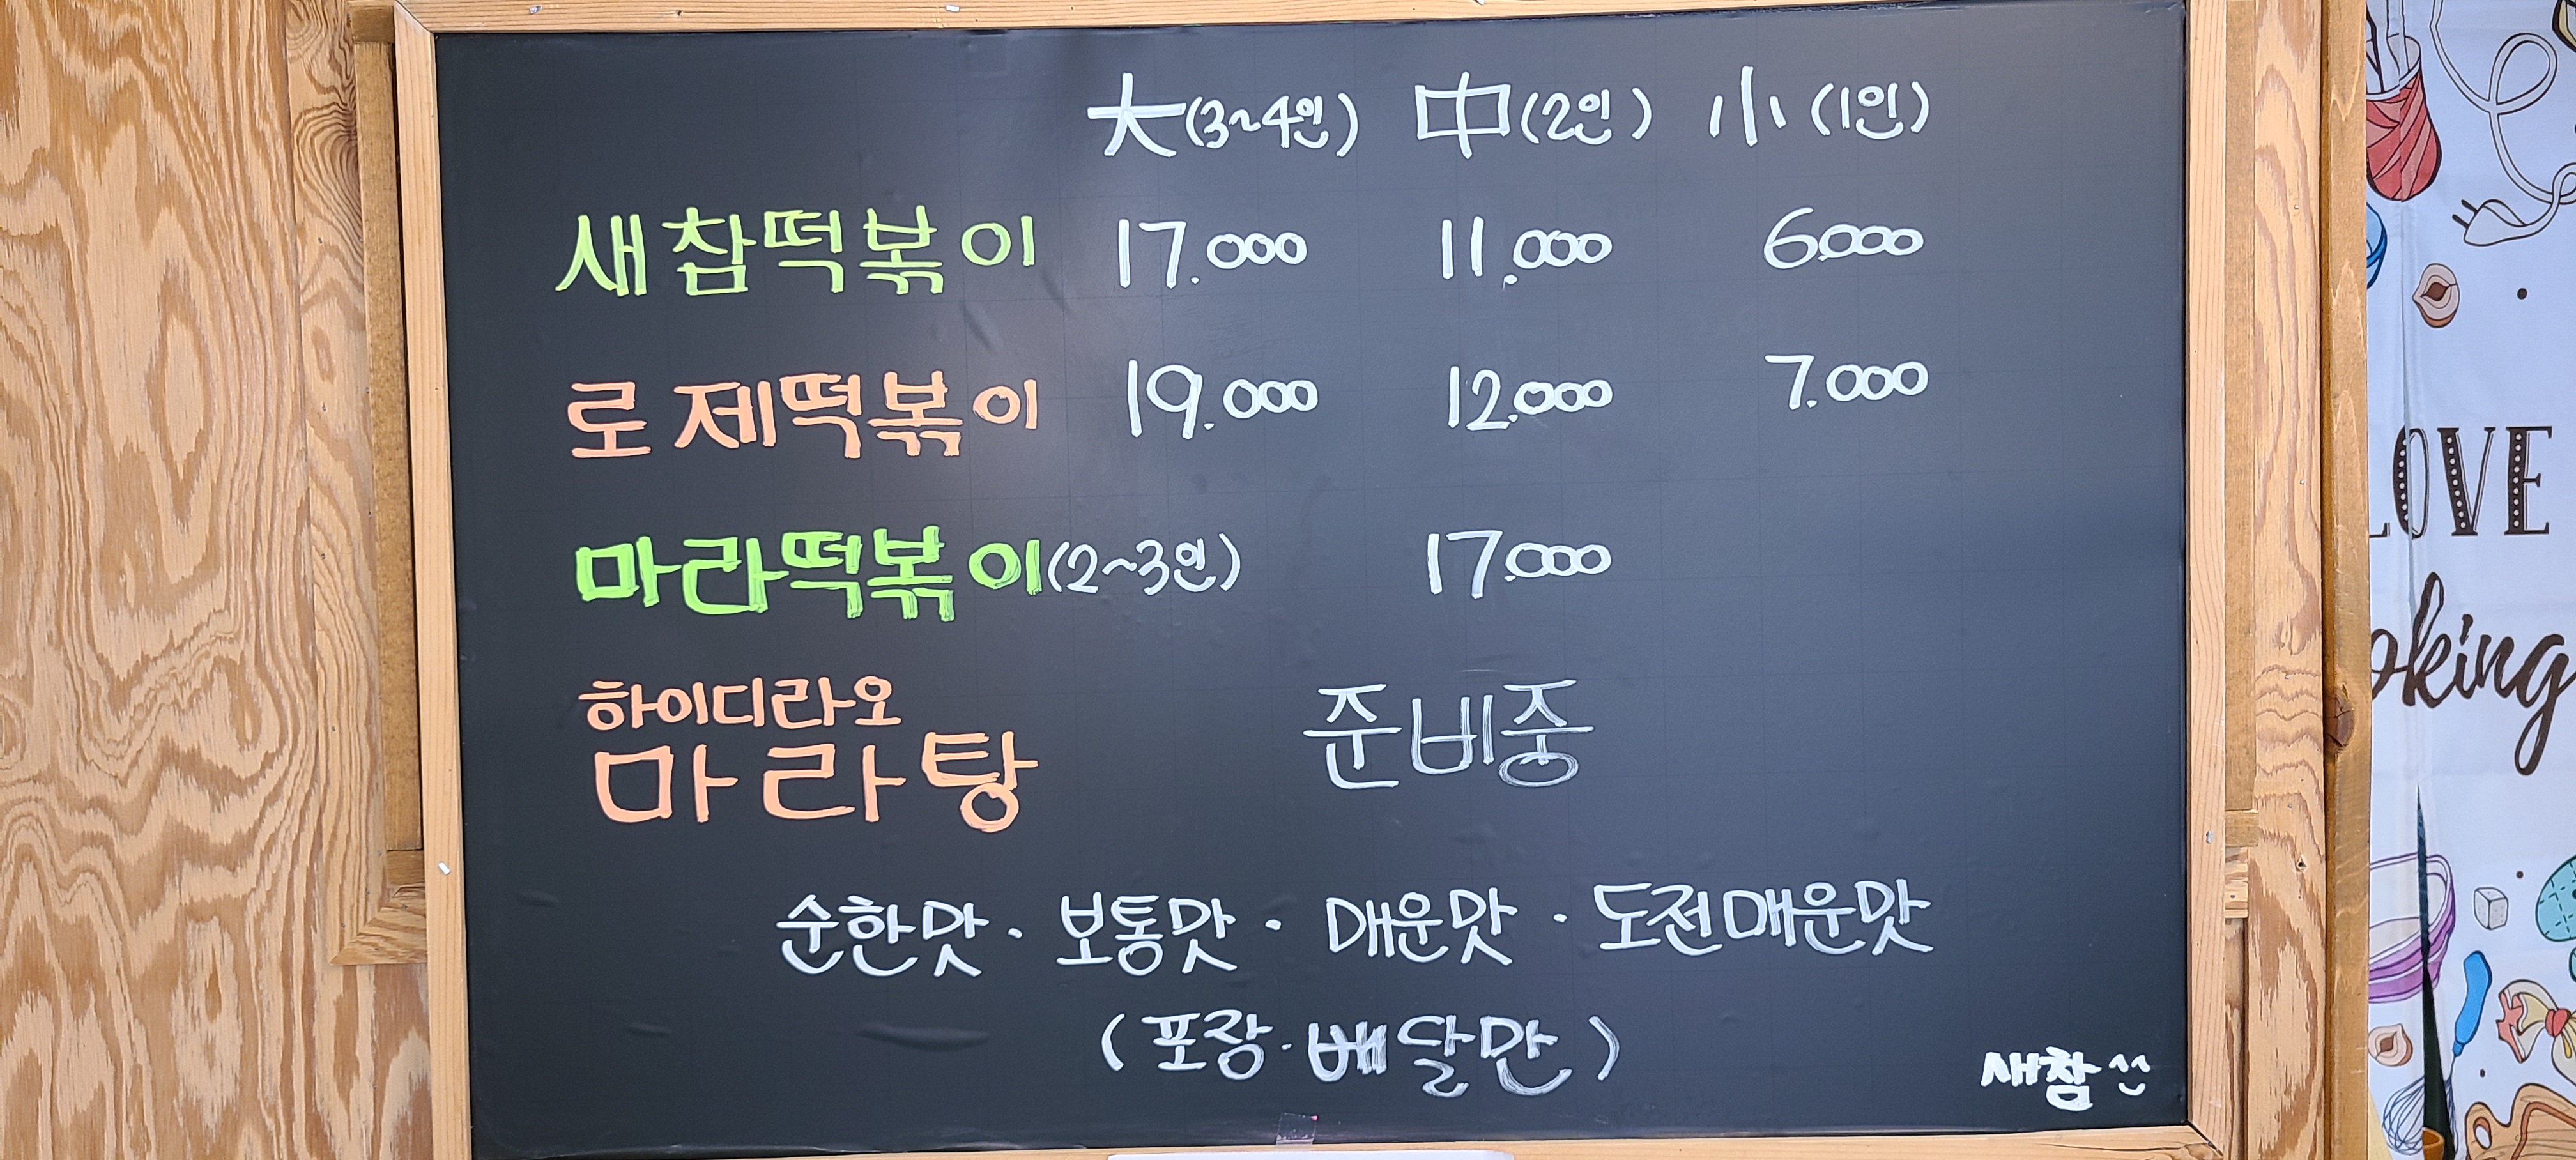 大(3~4인) 中(2인) 小(1인)
새참떡볶이 17.000 11.000 6.000
로제떡볶이 19.000 12.000 7.000
마라떡볶이(2~3인) 17.000
하이디라오
마라탕 준비중
순한맛 · 보통맛 · 매운맛 · 도전매운맛
(포장·배달만)
새참^^
LOVE
oking